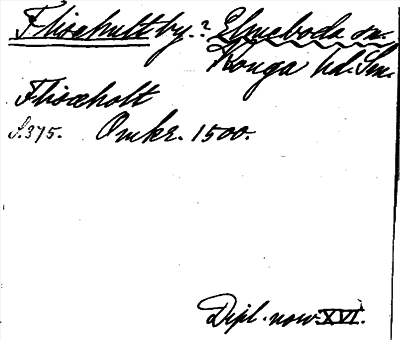 Flisehult by.? Elmeboda sn.
Konga hd. Sm.
Flisæholt
S.375. Omkr. 1500.
Dipl. norv. XVI.